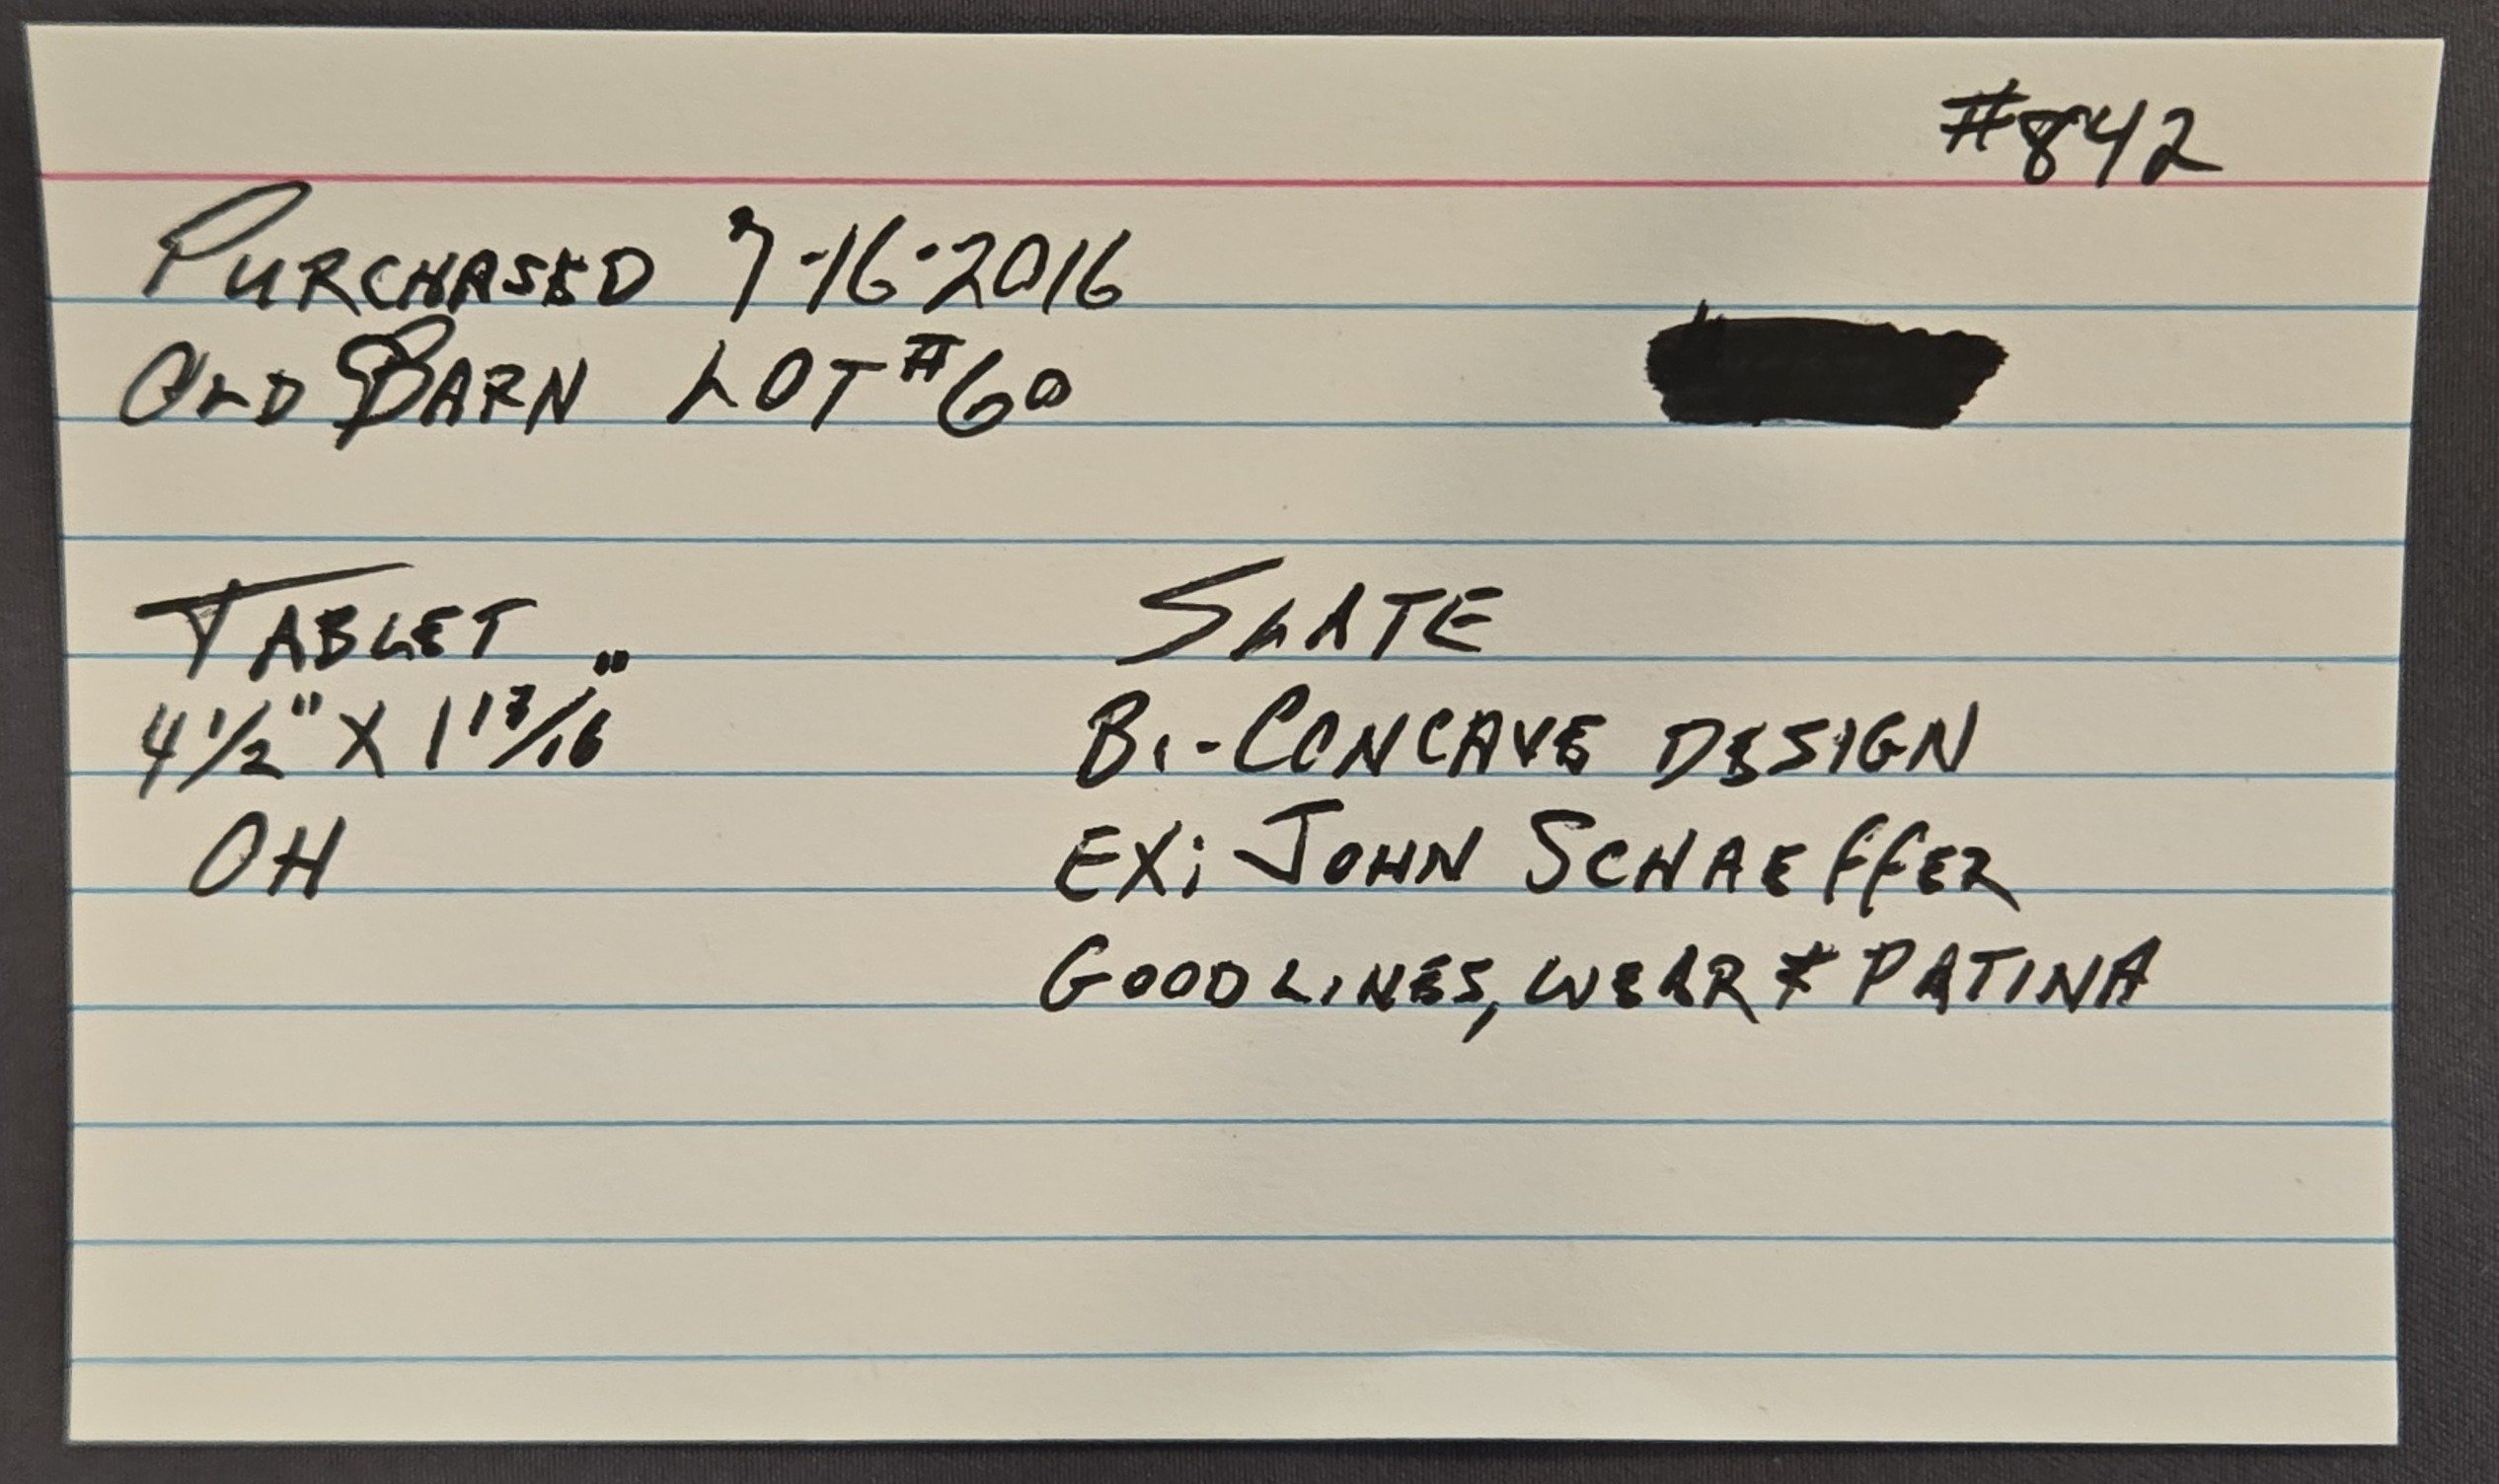 #842
PURCHASED 7-16-2016
OLD BARN LOT #60
TABLET
4 1/2" X 1 13/16"
OH
SLATE
BI-CONCAVE DESIGN
EX; JOHN SCHAEFFER
GOOD LINES, WEAR & PATINA